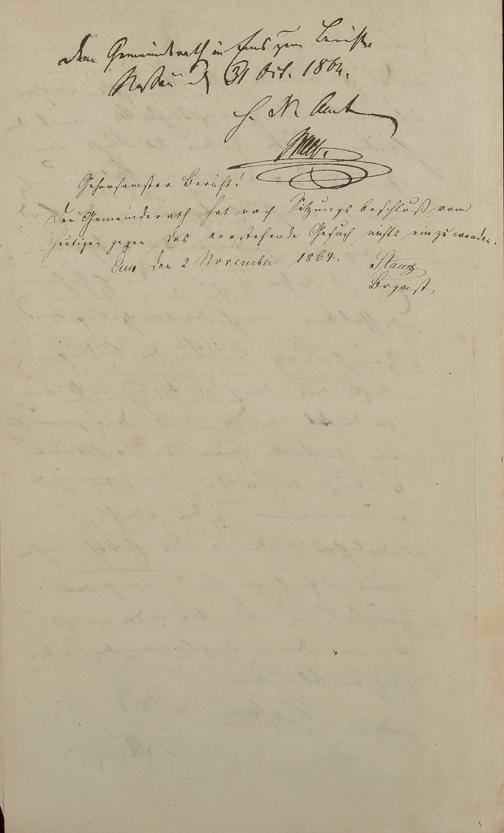 Dem Gemeinderath in Ems zum Bericht.
Nassau d 31 Oct. 1864.
H. N. Amt
Gehorsamster Bericht!
Der Gemeinderath hat nach Sitzungsbeschluß vom
heutigen gegen das vorstehende Gesuch nichts einzuwenden.
Ems den 2 November 1864.
Stang
Brgmst